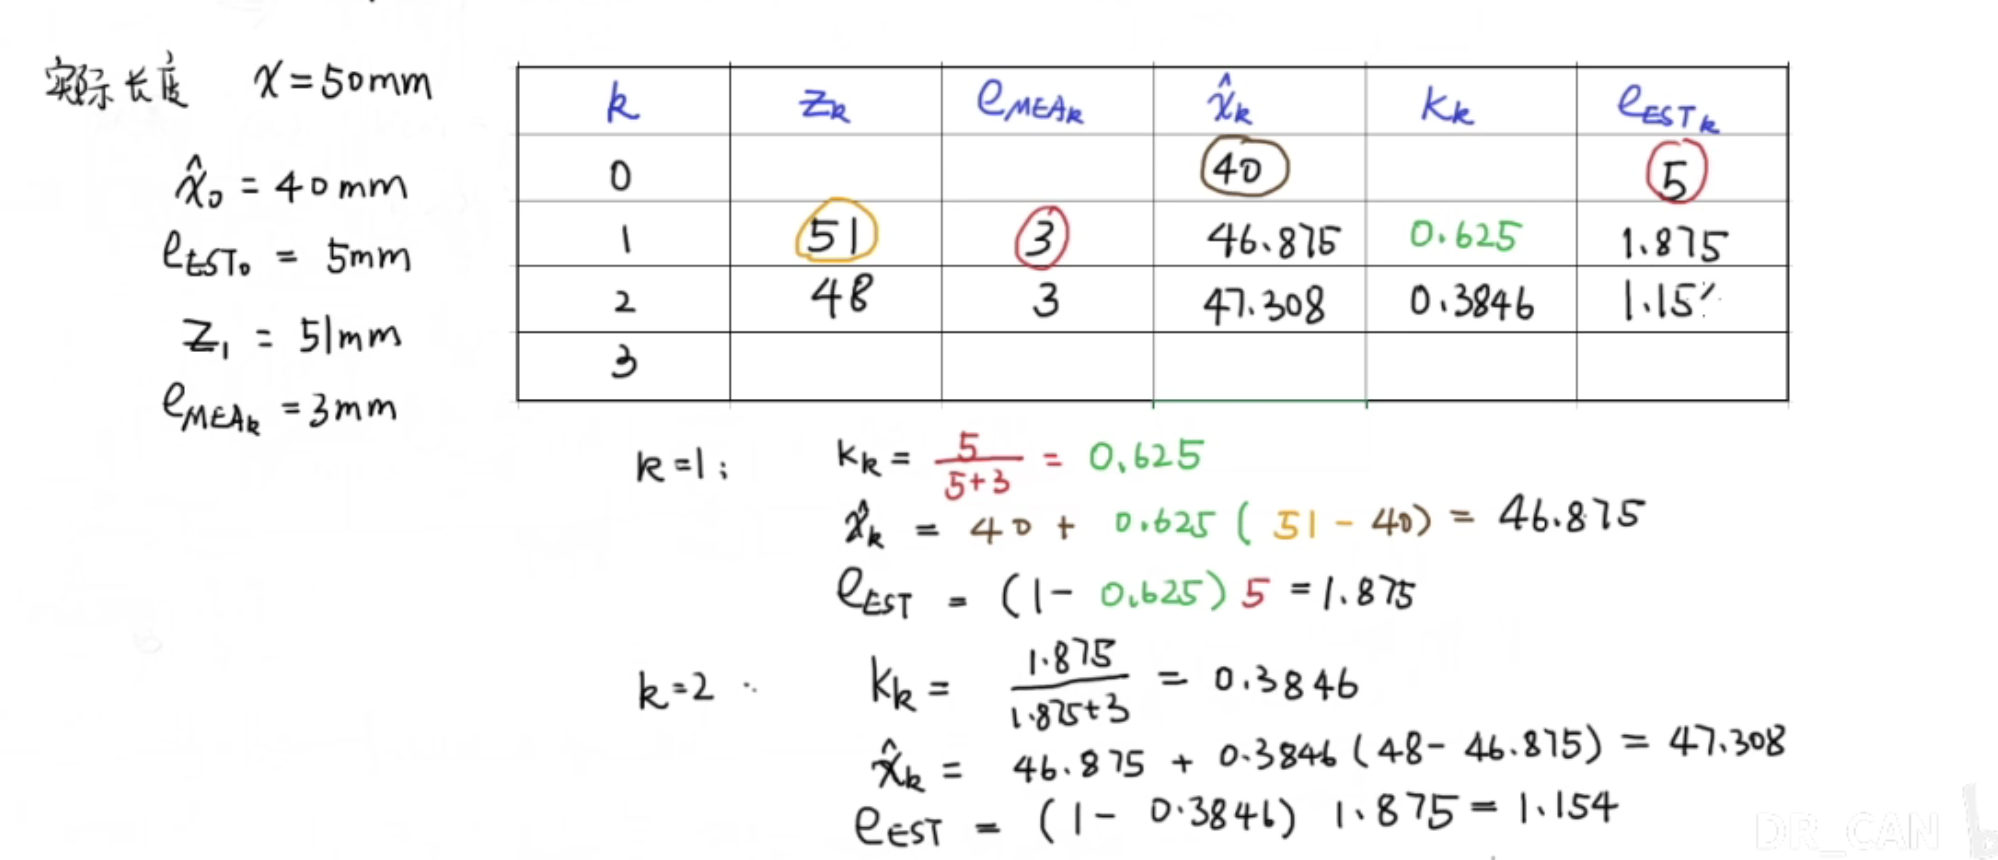 实际长度 x = 50mm
x̂₀ = 40mm
e_EST₀ = 5mm
Z₁ = 51mm
e_MEAₖ = 3mm
k Zₖ e_MEAₖ x̂ₖ Kₖ e_ESTₖ
0 40 5
1 51 3 46.875 0.625 1.875
2 48 3 47.308 0.3846 1.15
3
k=1: Kₖ = 5/(5+3) = 0.625
x̂ₖ = 40 + 0.625(51 - 40) = 46.875
e_EST = (1 - 0.625) 5 = 1.875
k=2: Kₖ = 1.875/(1.875+3) = 0.3846
x̂ₖ = 46.875 + 0.3846(48 - 46.875) = 47.308
e_EST = (1 - 0.3846) 1.875 = 1.154
DR_CAN